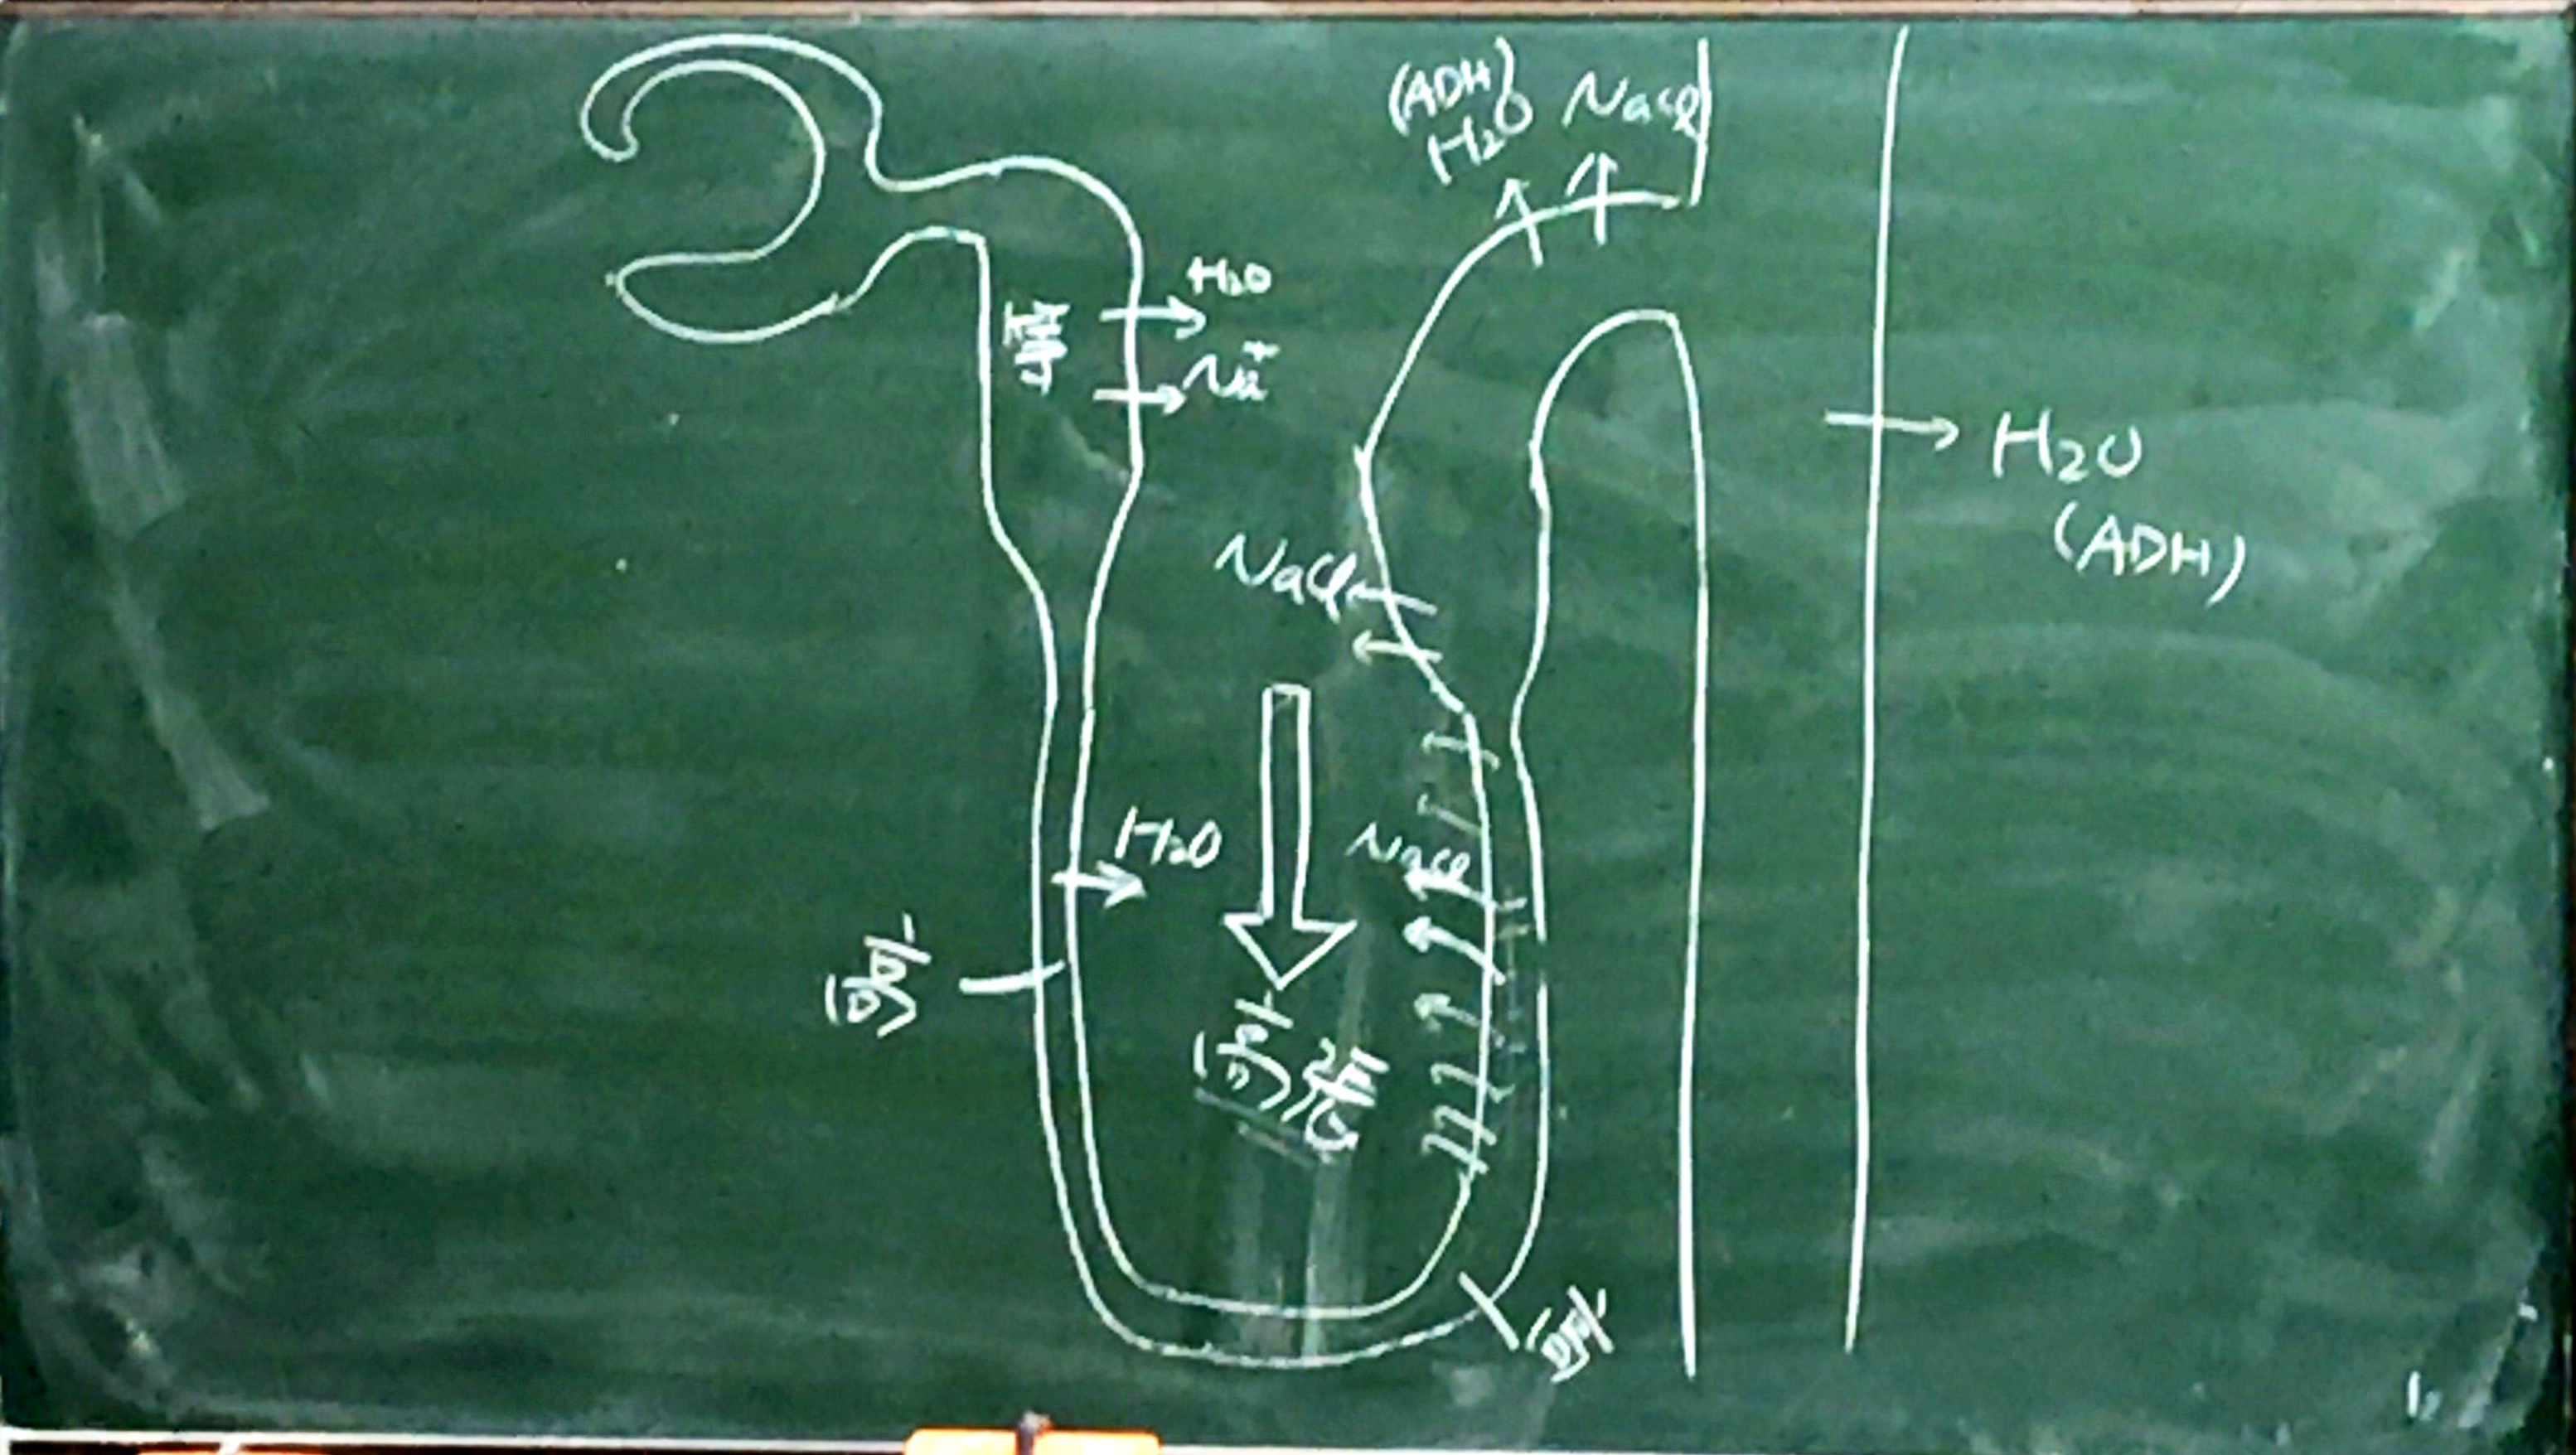 (ADH)
H₂O NaCl
H₂O
等
Na⁺
H₂O
(ADH)
NaCl
H₂O
NaCl
高
高張
高